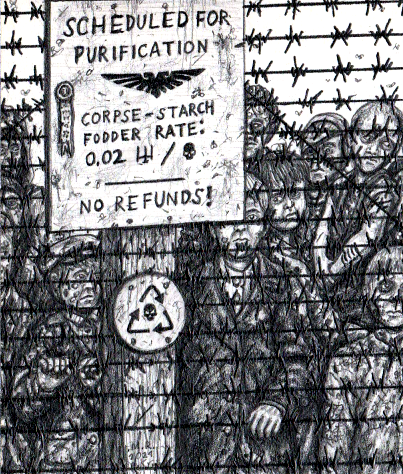 SCHEDULED FOR
PURIFICATION
CORPSE-STARCH
FODDER RATE:
0,02 /
NO REFUNDS!